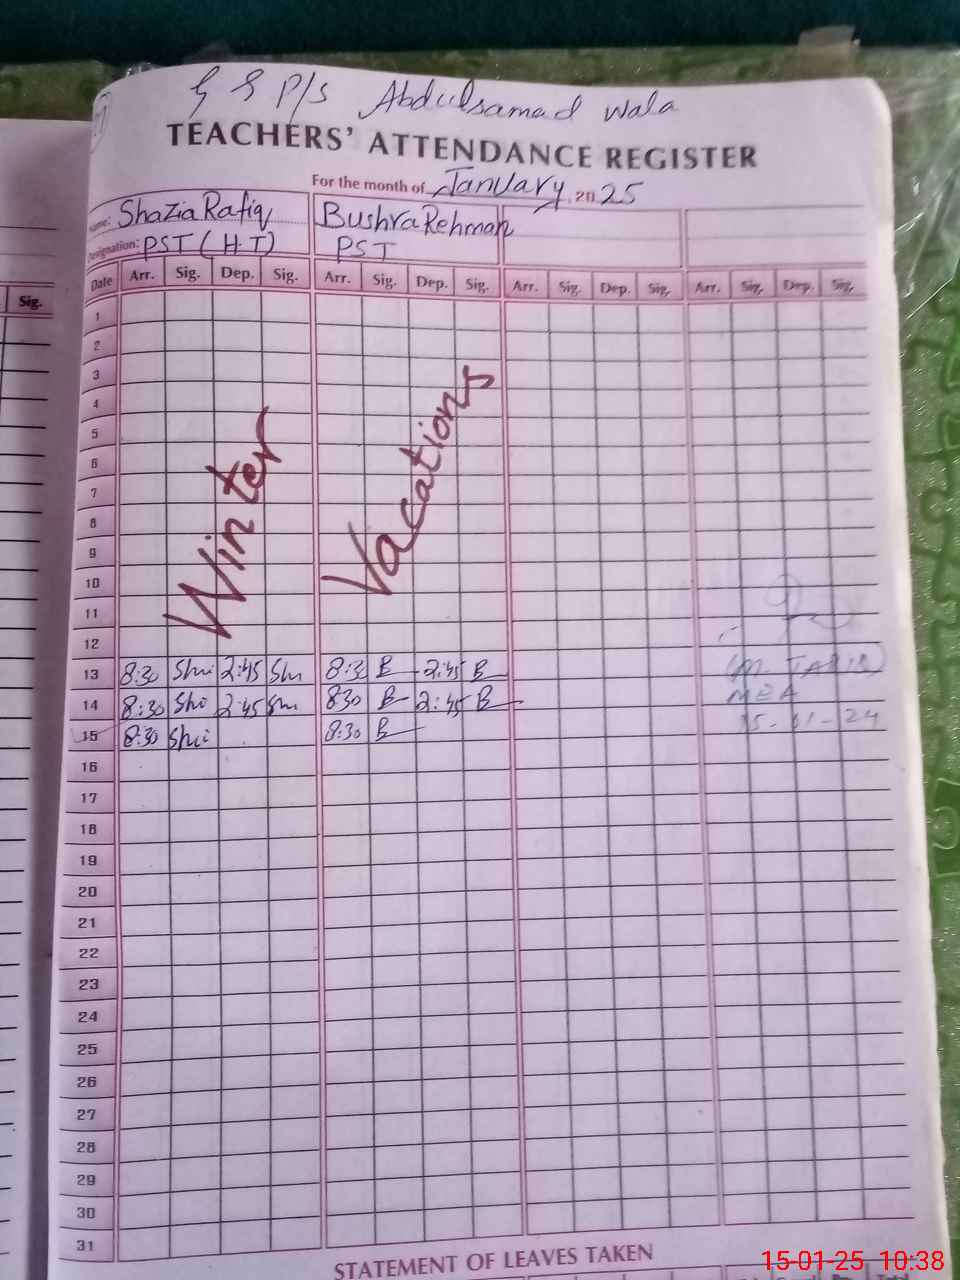 G G P/S Abdulsamad Wala
TEACHERS' ATTENDANCE REGISTER
For the month of January 2025
Name: Shazia Rafiq Bushra Rehman
Designation: PST (H.T) PST
Date Arr. Sig. Dep. Sig. Arr. Sig. Dep. Sig. Arr. Sig. Dep. Sig. Arr. Sig. Dep. Sig.
Sig.
1
2
3
4
5
6
7
8
9
10
11
12
Winter Vacations
13 8:30 2:45 8:3 B 2:45 B
14 8:30 2:45 830 B 2:45 B
15 8:30 8:30 B
(M. TARIQ)
MEA
15-01-24
16
17
18
19
20
21
22
23
24
25
26
27
28
29
30
31
STATEMENT OF LEAVES TAKEN
15-01-25 10:38